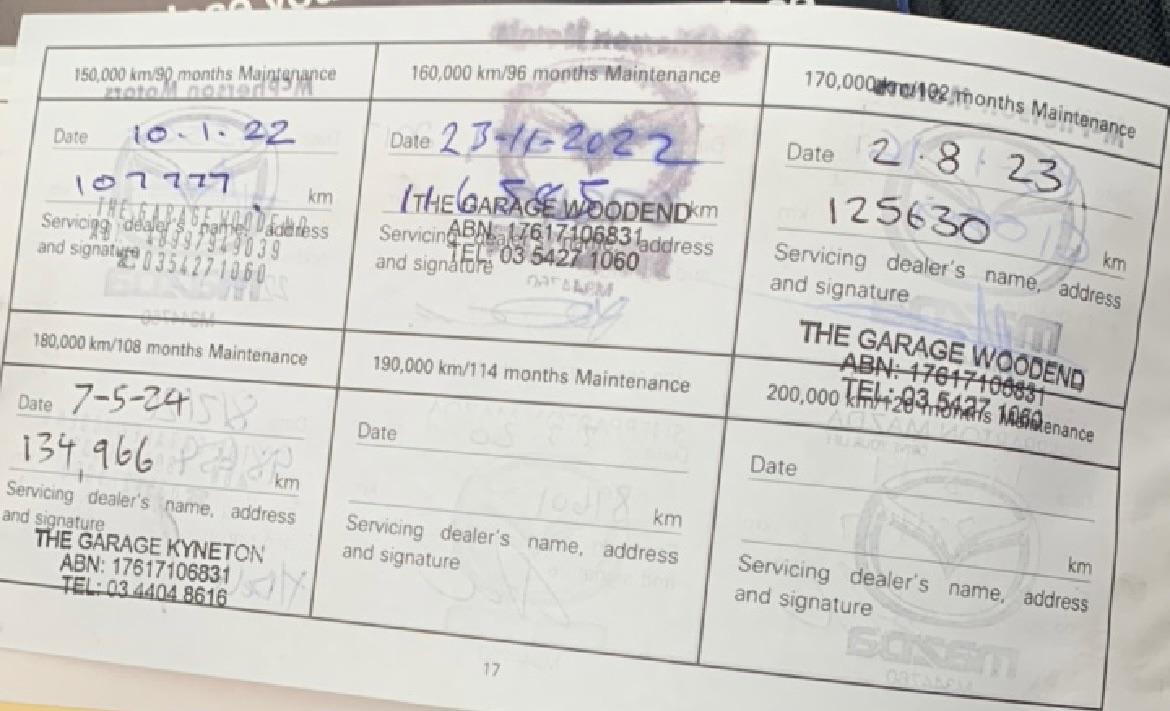 150,000 km/90 months Maintenance
Date 10.1.22
107777 km
Servicing dealer's name, address
and signature
THE GARAGE WOODEND
48997949039
0354271060
160,000 km/96 months Maintenance
Date 23-11-2022
116585 km
Servicing address
and signature
THE GARAGE WOODEND
ABN: 17617106831
TEL: 03 5427 1060
170,000 km/102 months Maintenance
Date 2.8 23
125630 km
Servicing dealer's name, address
and signature
THE GARAGE WOODEND
ABN: 17617106831
TEL: 03 5427 1060
180,000 km/108 months Maintenance
Date 7-5-24
134,966 km
Servicing dealer's name, address
and signature
THE GARAGE KYNETON
ABN: 17617106831
TEL: 03 4404 8616
190,000 km/114 months Maintenance
Date
km
Servicing dealer's name, address
and signature
200,000 km/120 months Maintenance
Date
km
Servicing dealer's name, address
and signature
17